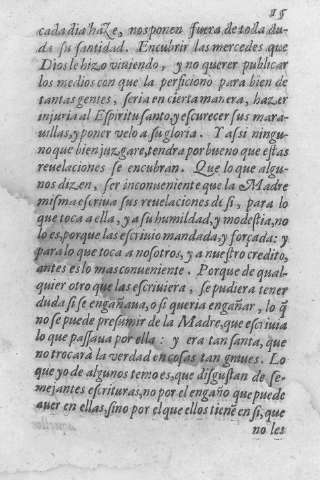 cada dia haze, nos ponen fuera de toda du-
da su santidad. Encubrir las mercedes que
Dios le hizo viuiendo, y no querer publicar
los medios con que la perficionò para bien de
tantas gentes, seria en cierta manera, hazer
injuria al Espiritu santo, y escurecer sus mara-
uillas, y poner velo a su gloria. Y assi ningu-
no que bien juzgare, tendra por bueno que estas
reuelaciones se encubran. Que lo que algu-
nos dizen, ser inconueniente que la Madre
misma escriua sus reuelaciones de si, para lo
que toca a ella, y a su humildad, y modestia, no
lo es, porque las escriuio mandada, y forçada: y
para lo que toca a nosotros, y a nuestro credito,
antes es lo mas conueniente. Porque de qual-
quier otro que las escriuiera, se pudiera tener
duda si se engañaua, o si queria engañar, lo q̃
no se puede presumir de la Madre, que escriuia
lo que passaua por ella: y era tan santa, que
no trocarà la verdad en cosas tan graues. Lo
que yo de algunos temo es, que disgustan de se-
mejantes escrituras, no por el engaño que puede
auer en ellas, sino por el que ellos tienen en si, que
no les